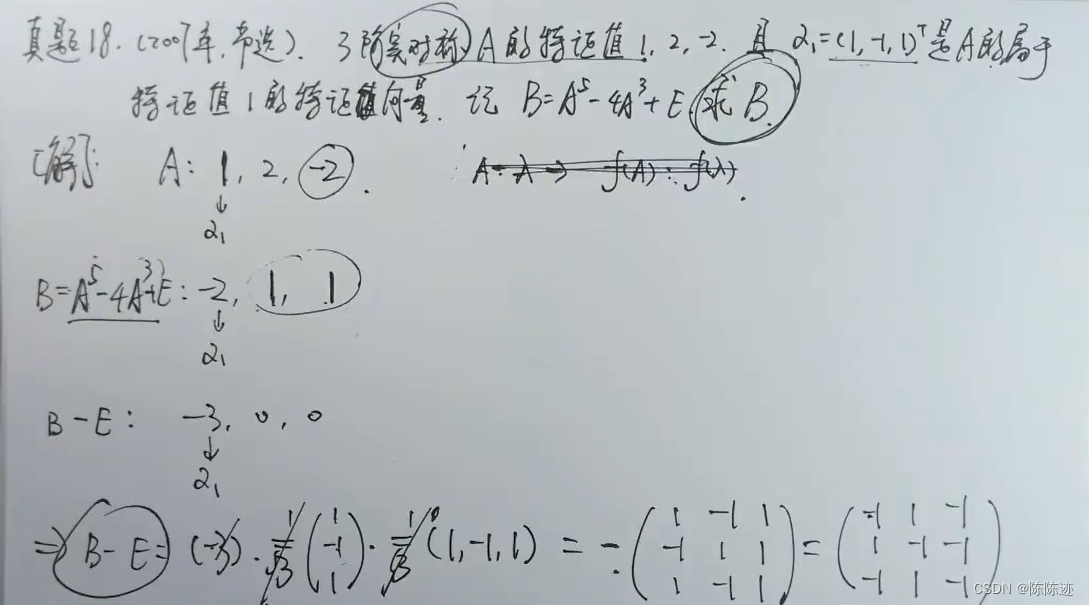 真题18.(2007年,节选). 3阶实对称A的特征值1,2,-2. 且 α₁=(1,-1,1)ᵀ是A的属于
特征值1的特征向量. 记 B=A⁵-4A³+E. 求B.
[解]: A: 1, 2, -2.
A: λ → f(A): f(λ).
↓
α₁
B=A⁵-4A³+E: -2, 1, 1
↓
α₁
B-E: -3, 0, 0
↓
α₁
⇒ B-E= (-3)·1/√3 (1 -1 1)·1/√3 (1,-1,1) = -(1 -1 1 -1 1 1 1 -1 1) = (-1 1 -1 1 -1 -1 -1 1 -1)
CSDN @陈陈迹